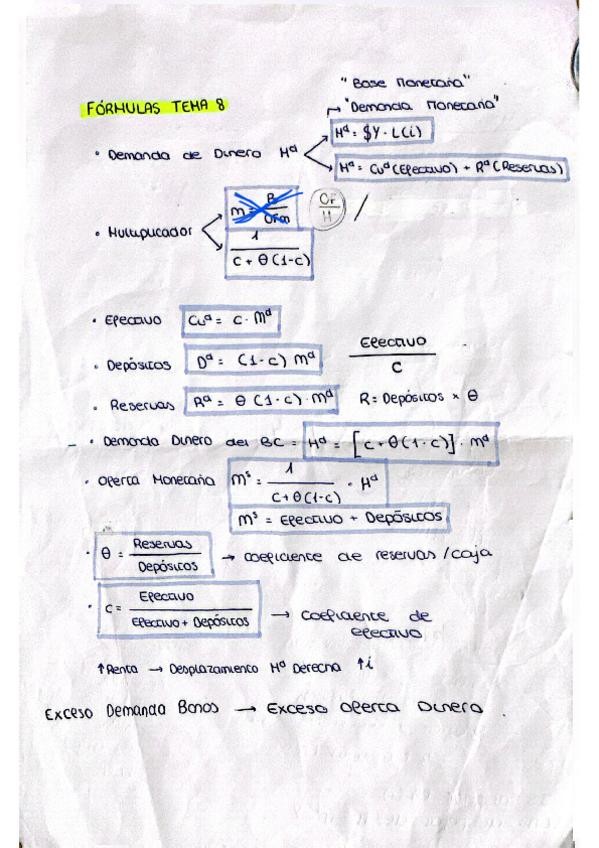 "Base Monetaria"
FÓRMULAS TEMA 8
→ "Demanda Monetaria"
Hᵈ = $Y · L(i)
• Demanda de Dinero Hᵈ
Hᵈ = Cuᵈ (Efectivo) + Rᵈ (Reservas)
m =
Or
H
/
• Multiplicador
1
c + θ (1-c)
• Efectivo Cuᵈ = c · Mᵈ
• Depósitos Dᵈ = (1-c) Mᵈ
Efectivo
c
• Reservas Rᵈ = θ (1-c) · Mᵈ R = Depósitos × θ
• Demanda Dinero del BC = Hᵈ = [c + θ (1-c)] · Mᵈ
• Oferta Monetaria Mˢ = 1 / c + θ (1-c) · Hᵈ
Mˢ = Efectivo + Depósitos
• θ = Reservas / Depósitos → coeficiente de reservas / caja
• c = Efectivo / Efectivo + Depósitos → Coeficiente de
efectivo
↑ Renta → Desplazamiento Hᵈ Derecha ↑i
Exceso Demanda Bonos → Exceso Oferta Dinero.